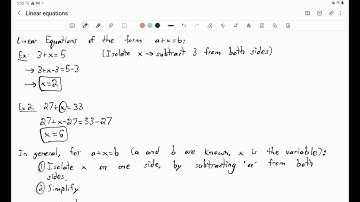 Linear equations
Linear Equations of the form a+x=b:
Ex: 3+x=5 (Isolate x → subtract 3 from both sides)
→ 3+x-3=5-3
→ x=2
Ex 2: 27+x=33
27+x-27=33-27
x=6
In general, for a+x=b (a and b are known, x is the variable):
① Isolate x on one side, by subtracting 'a' from both
sides.
② Simplify.